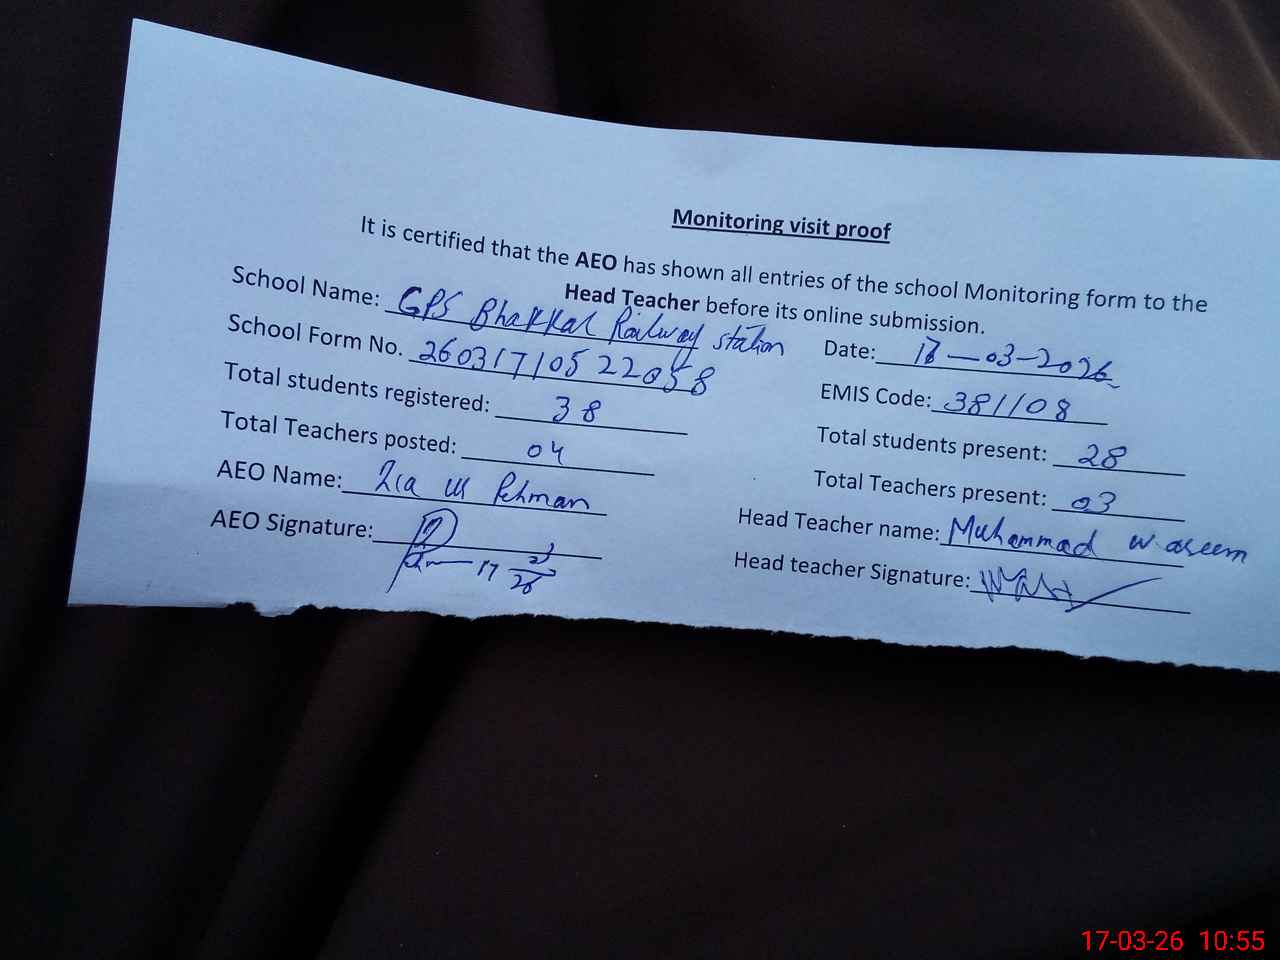 Monitoring visit proof
It is certified that the AEO has shown all entries of the school Monitoring form to the
Head Teacher before its online submission.
School Name: GPS Bhakkar Railway station
Date: 17-03-2026
School Form No. 26031710522058
EMIS Code: 381108
Total students registered: 38
Total students present: 28
Total Teachers posted: 04
Total Teachers present: 03
AEO Name: Zia ur Rehman
Head Teacher name: Muhammad waseem
AEO Signature:
Head teacher Signature:
17-03-26 10:55